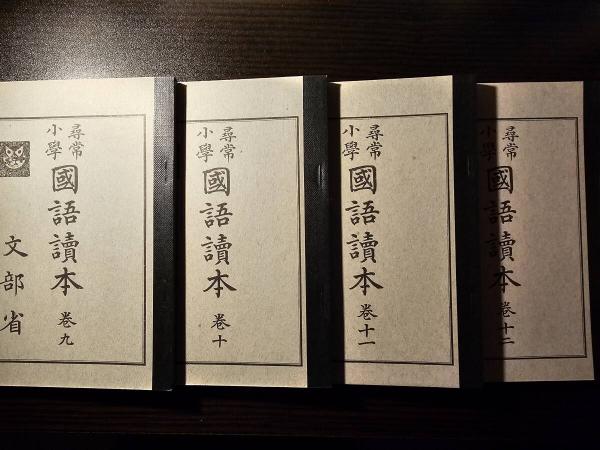 尋常
小學
國語讀本
卷九
文部省
尋常
小學
國語讀本
卷十
尋常
小學
國語讀本
卷十一
尋常
小學
國語讀本
卷十二